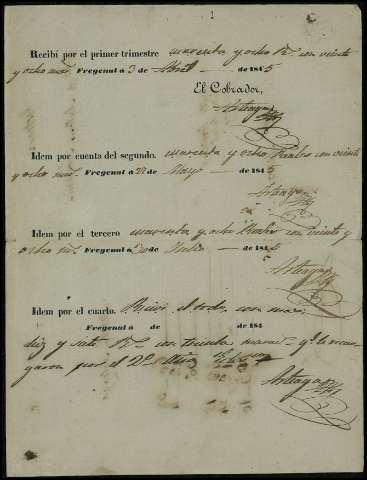 Recibí por el primer trimestre cuarenta y ocho R.s con veinte
y ocho mrs. Fregenal á 3 de Abril de 1845
El Cobrador,
Arteaga
Idem por cuenta del segundo. cuarenta y ocho Reales con veinte
y ocho mrs. Fregenal á 22 de Mayo de 1845
Arteaga
Idem por el tercero cuarenta y ocho Reales con veinte y
ocho ms. Fregenal á de Julio de 1845
Arteaga
Idem por el cuarto. Recivi el todo con mas
Fregenal á de de 184
diez y siete R.s con treinta mara.s q.e le
por el 2.o
Arteaga